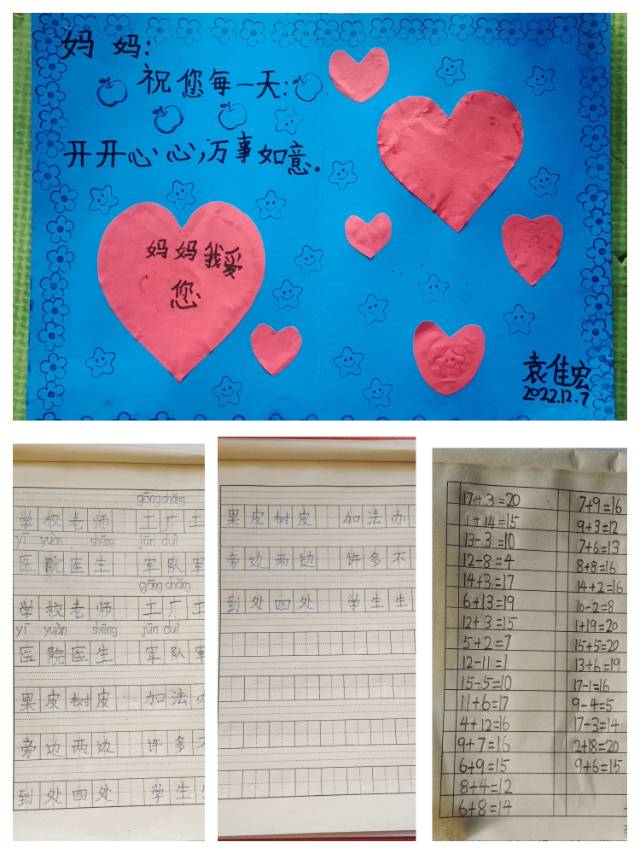 妈妈:
祝您每一天:
开开心心,万事如意。
妈妈我爱
您
袁佳宏
2022.12.7
gōng chǎng
学校老师 工厂工
yī yuàn shēng jūn duì
医院医生 军队军
gōng chǎng
学校老师 工厂工
yī yuàn shēng jūn duì
医院医生 军队军
果皮树皮 加法办
旁边两边 许多不
到处四处 学生生
果皮树皮 加法办
旁边两边 许多不
到处四处 学生生
17+3=20
1+14=15
13-3=10
12-8=4
14+3=17
6+13=19
12+3=15
5+2=7
12-11=1
15-5=10
11+6=17
4+12=16
9+7=16
6+9=15
8+4=12
6+8=14
7+9=16
9+3=12
7+6=13
8+8=16
14+2=16
10-2=8
1+19=20
15+5=20
13+6=19
17-1=16
9-4=5
17-3=14
2+18=20
9+6=15